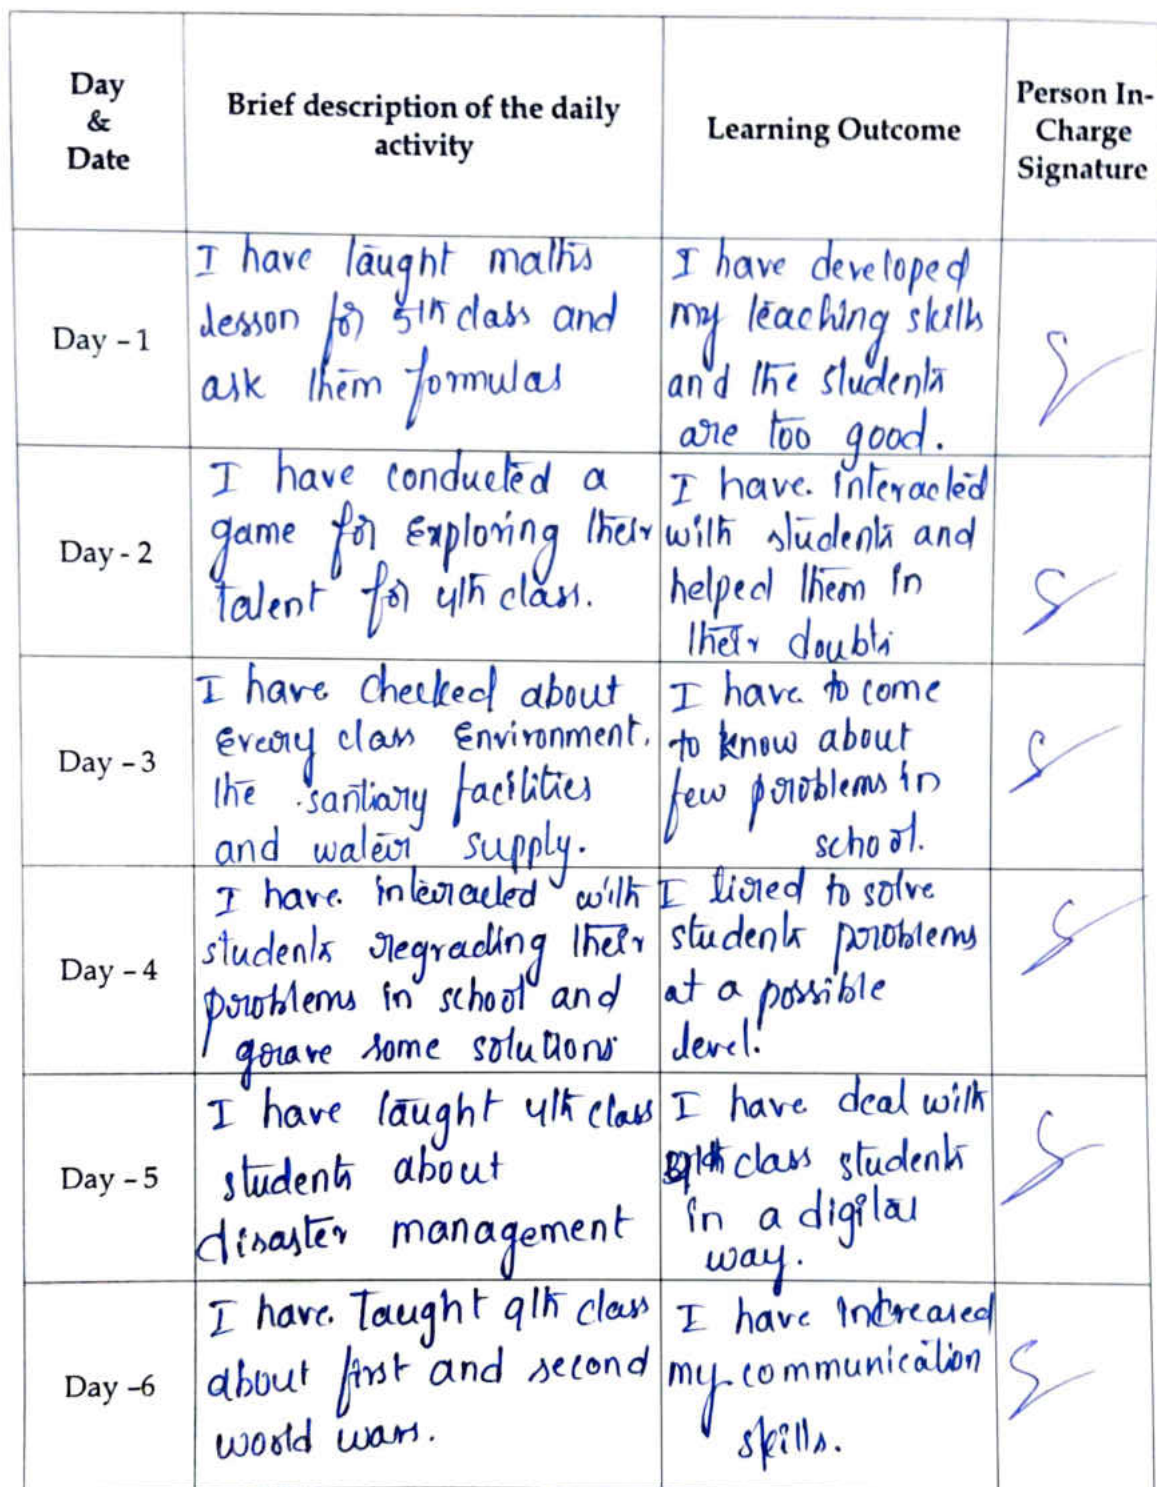 Day
&
Date
Brief description of the daily
activity
Learning Outcome
Person In-
Charge
Signature
Day – 1
I have taught maths
lesson for 5th class and
ask them formulas
I have developed
my teaching skills
and the students
are too good.
Day - 2
I have conducted a
game for exploring their
talent for 4th class.
I have interacted
with students and
helped them in
their doubts
Day – 3
I have checked about
every class environment.
the santiary facilities
and water supply.
I have to come
to know about
few problems in
school.
Day – 4
I have interacted with
students regrading their
problems in school and
grave some solutions
I tired to solve
students problems
at a possible
level.
Day – 5
I have taught 4th class
students about
disaster management
I have deal with
class students
in a digital
way.
Day –6
I have Taught 9th class
about first and second
world wars.
I have increased
my communication
skills.